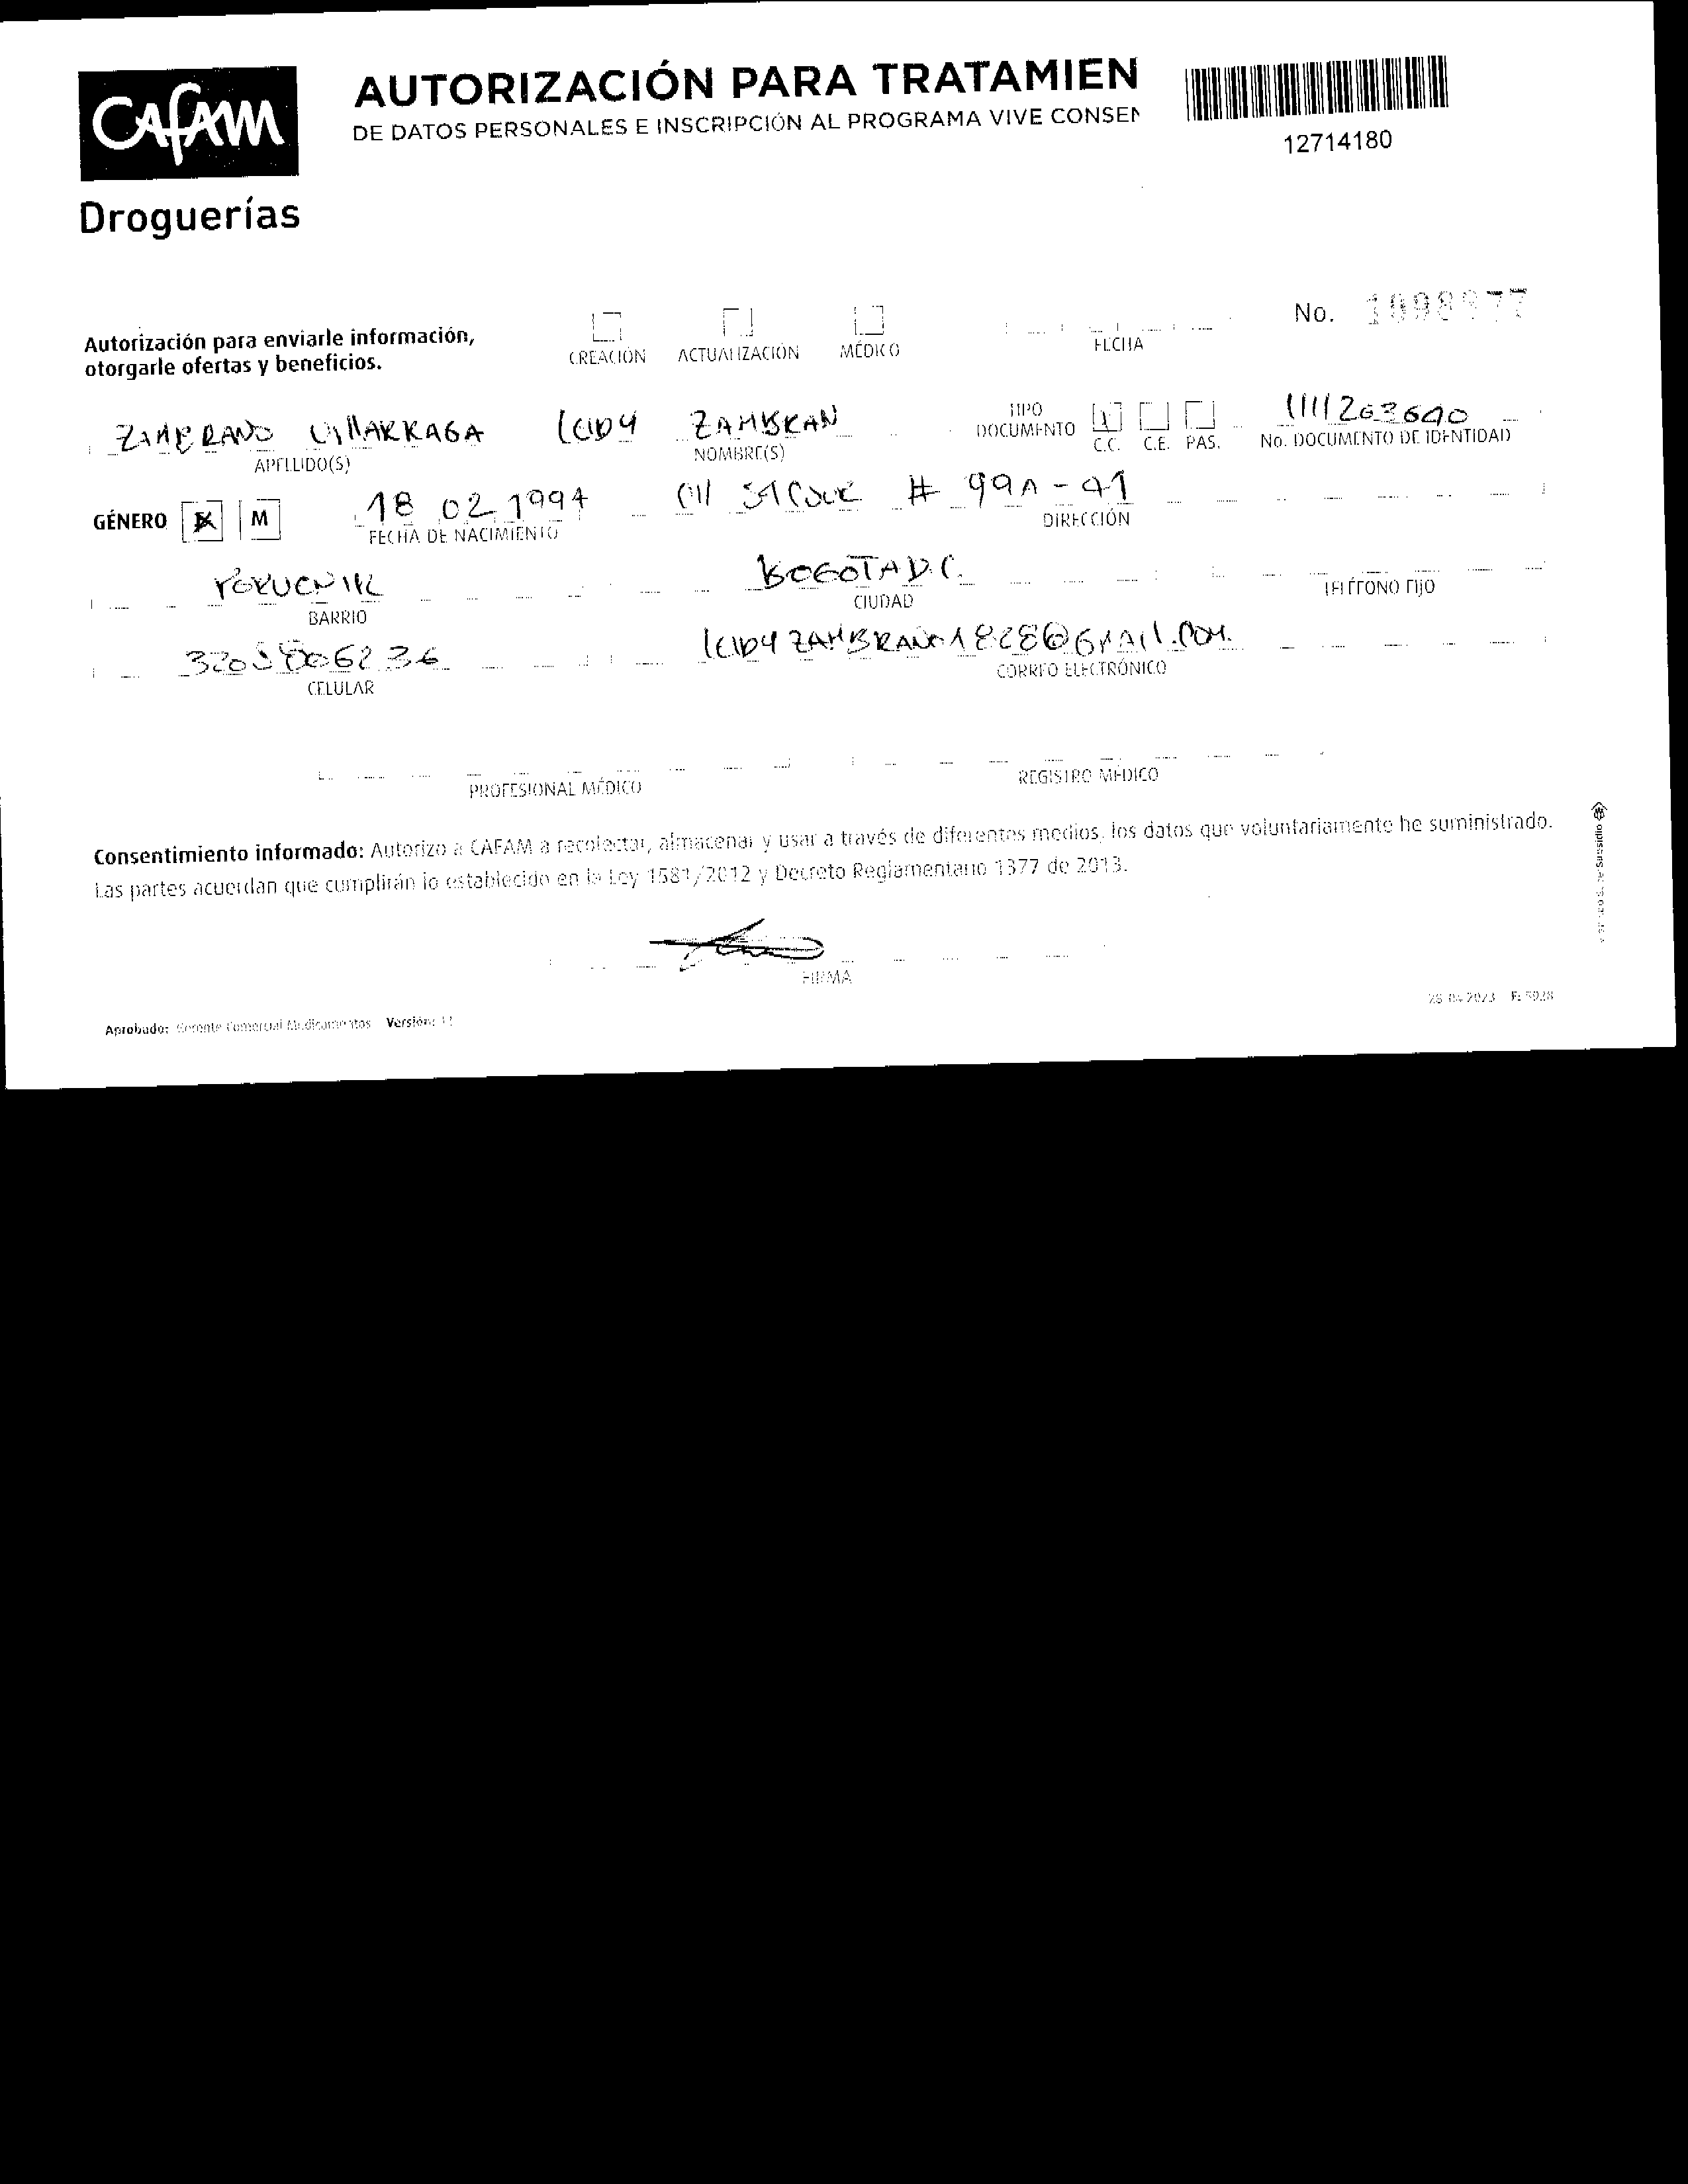 CAFAM
Droguerías
AUTORIZACIÓN PARA TRATAMIEN
DE DATOS PERSONALES E INSCRIPCIÓN AL PROGRAMA VIVE CONSEN
12714180
Autorización para enviarle información,
otorgarle ofertas y beneficios.
CREACIÓN ACTUALIZACIÓN MÉDICO
FECHA
No. 1098977
ZAMBRANO VILLARRAGA LEIDY ZAMBRAN
APELLIDO(S) NOMBRE(S)
TIPO DOCUMENTO C.C. C.E. PAS.
1111263690
No. DOCUMENTO DE IDENTIDAD
GÉNERO M
18 02 1994
FECHA DE NACIMIENTO
# 99A - 91
DIRECCIÓN
BARRIO
BOGOTA D.C.
CIUDAD
TELÉFONO FIJO
CELULAR
CORREO ELECTRÓNICO
PROFESIONAL MÉDICO
REGISTRO MÉDICO
Consentimiento informado: Autorizo a CAFAM a recolectar, almacenar y usar a través de diferentes medios, los datos que voluntariamente he suministrado.
Las partes acuerdan que cumplirán lo establecido en la Ley 1581/2012 y Decreto Reglamentario 1377 de 2013.
FIRMA
Aprobado: Gerente Comercial Medicamentos Versión: 11